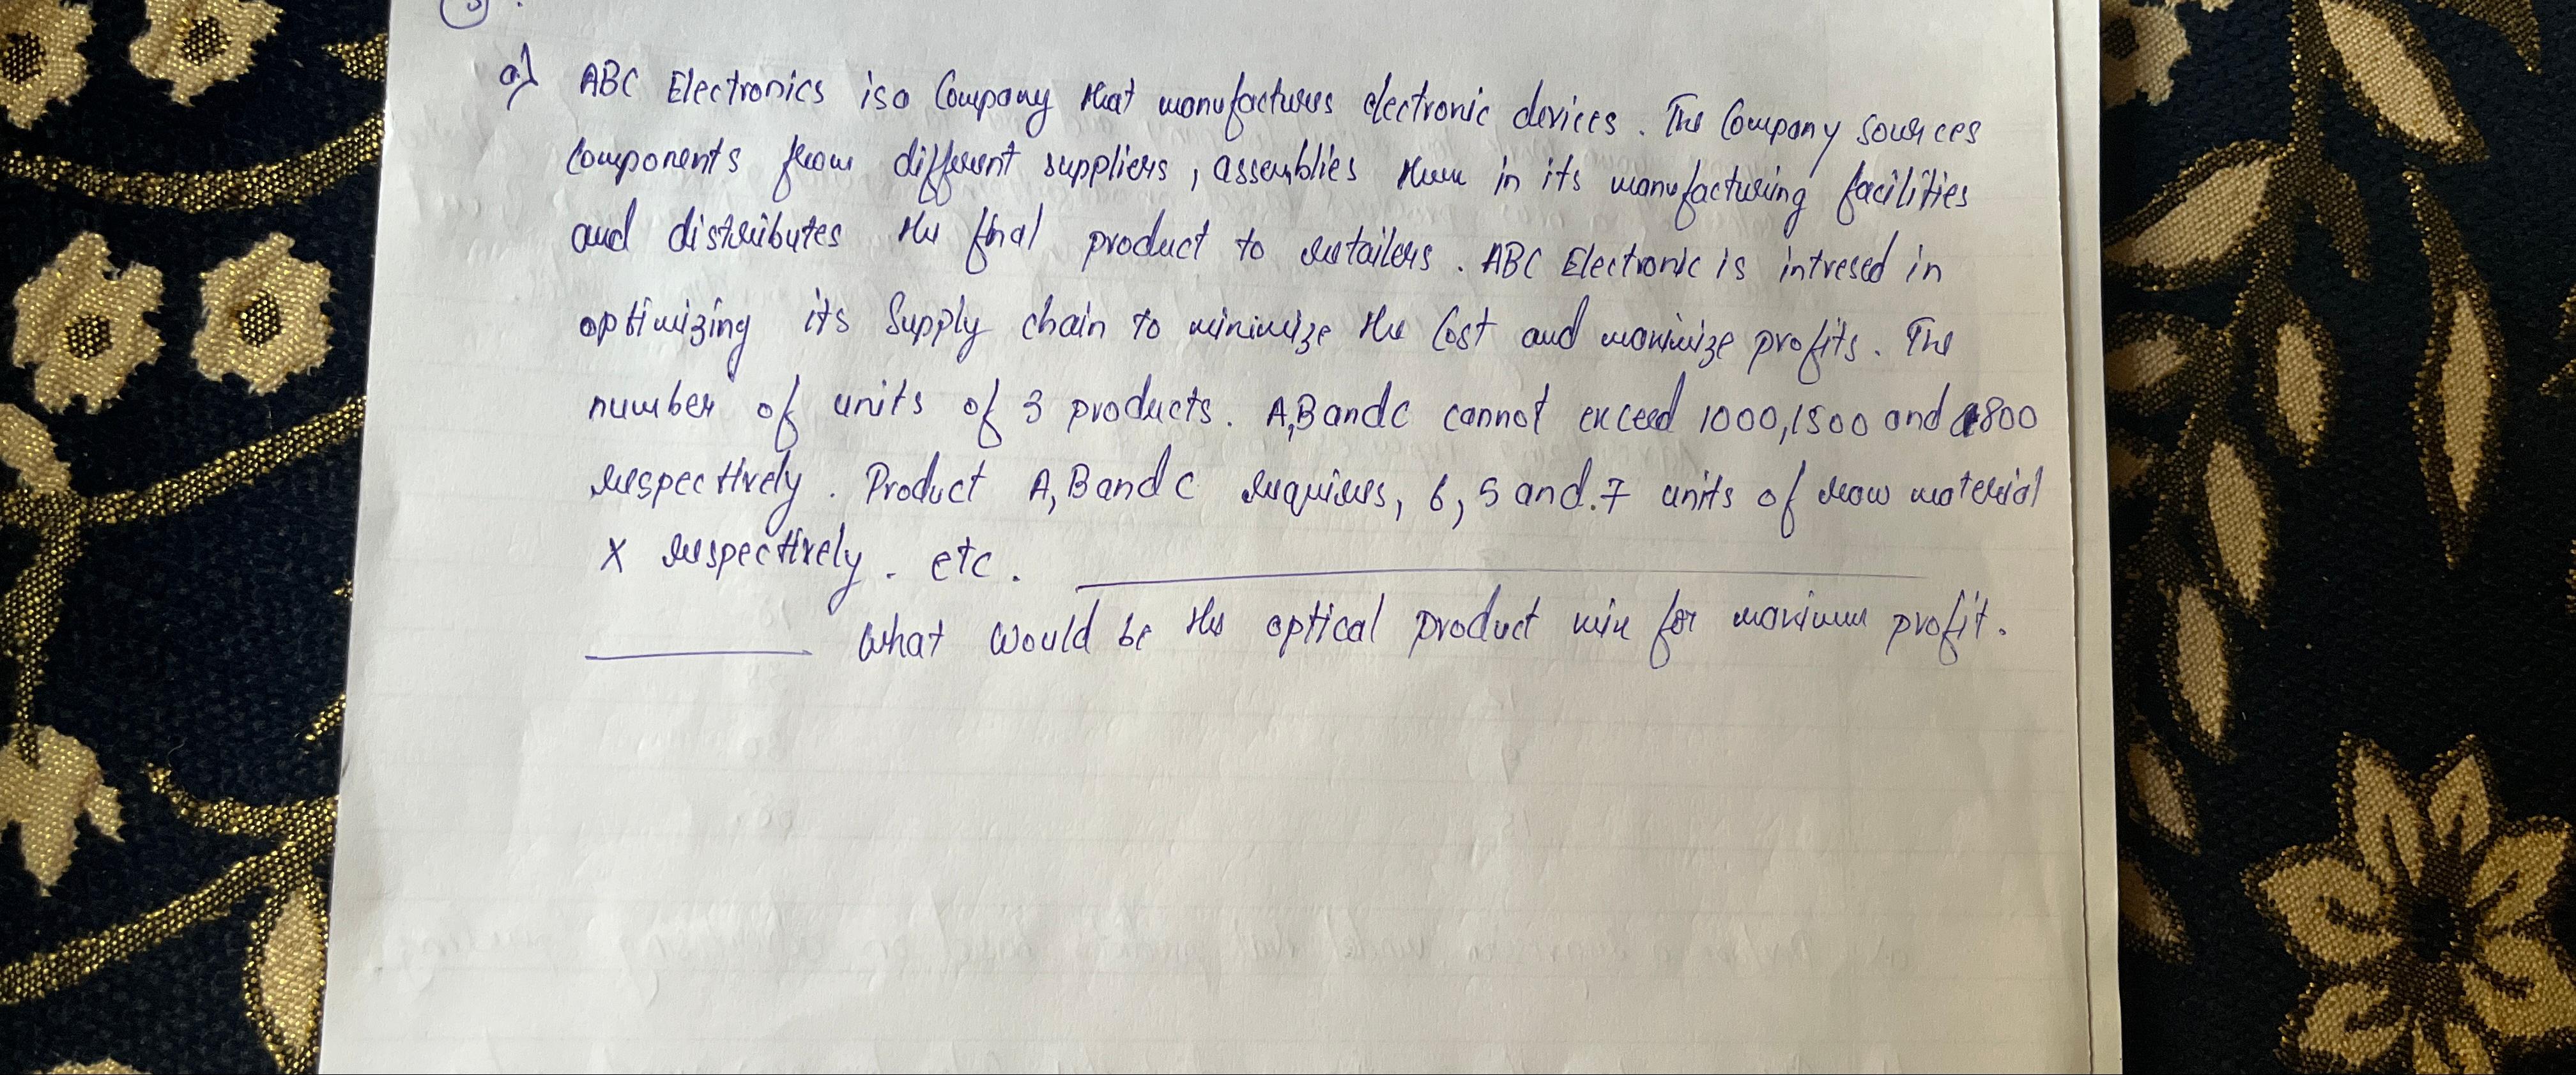 a) ABC Electronics is a Company that manufactures electronic devices. The Company sources
components from different suppliers, assemblies them in its manufacturing facilities
and distributes the final product to retailers. ABC Electronic is intresed in
optimizing its Supply chain to minimize the Cost and maximize profits. The
number of units of 3 products. A,B and C cannot exceed 1000,1500 and 800
respectively. Product A, B and C requires, 6, 5 and.7 units of raw material
X respectively. etc.
What would be the optical product mix for maximum profit.